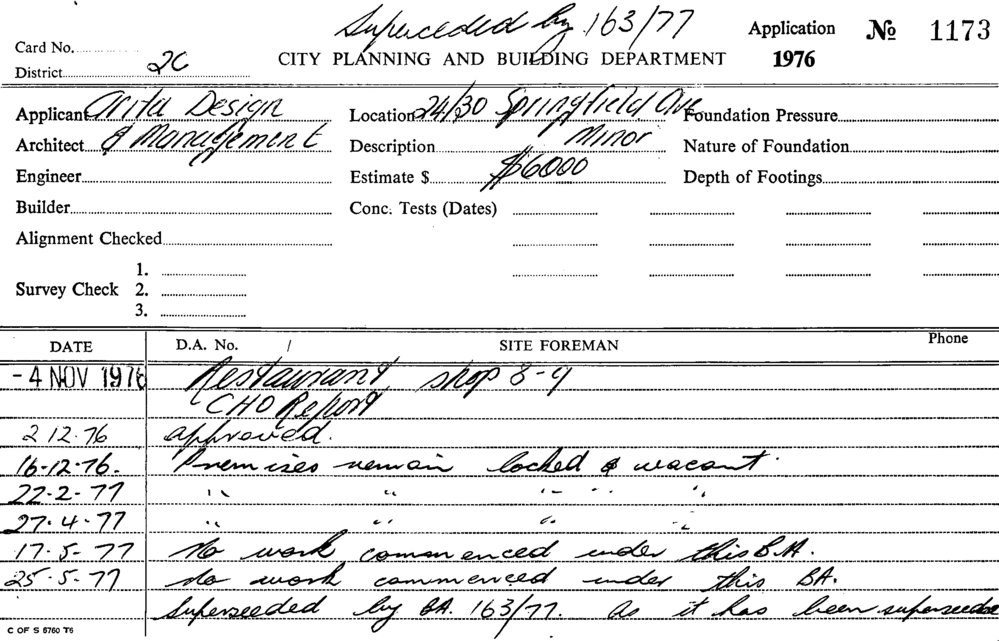 Superceded by 163/77
Application No 1173
Card No.
CITY PLANNING AND BUILDING DEPARTMENT 1976
District 2C
Applicant Arita Design Location 24/30 Springfield Ave Foundation Pressure
Architect & Management Description Minor Nature of Foundation
Engineer Estimate $ $6000 Depth of Footings
Builder Conc. Tests (Dates)
Alignment Checked
1.
Survey Check 2.
3.
DATE D.A. No. / SITE FOREMAN Phone
-4 NOV 1976 Restaurant, shop 8-9
CHO Report
2 12.76 approved.
16-12-76. Premises remain locked & vacant.
22-2-77 " " " " "
27.4.77 " " " "
17-5-77 No work commenced under this B.A.
25.5-77 No work commenced under this BA.
Superseeded by BA. 163/77. as it has been superseede
C OF S 5760 T6